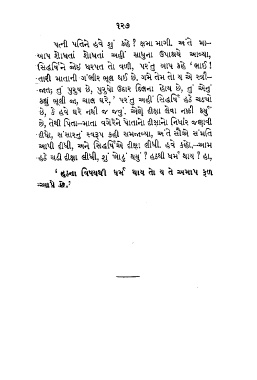 ૧૨૭
પત્ની પતિને હવે શું કહે? ક્ષમા માગી. અંતે મા–
બાપ શોધતાં શોધતાં અહીં સાધુના ઉપાશ્રયે આવ્યા,
સિદ્ધર્ષિ'ને જોઈ ધરપત તો વળી, પરંતુ બાપ કહે 'ભાઈ!
તારી માતાની ગંભીર ભૂલ થઈ છે, ગમે તેમ તો ય એ સ્ત્રી–
જાત; તું પુરુષ છે, પુરુષો ઉદાર દિલના હોય છે, તું એનું
કહ્યું ભૂલી જા, ચાલ ઘરે,' પરંતુ અહીં સિદ્ધર્ષિ હઠે ચડ્યો
છે, કે હવે ઘરે નથી જ જવું. એણે દીક્ષા લેવા નક્કી કર્યું
છે, તેથી પિતા–માતા વગેરેને પોતાનો દીક્ષાનો નિર્ધાર જણાવી
દીધો, સંસારનું સ્વરૂપ કહી સમજાવ્યા, અંતે સૌએ સંમતિ
આપી દીધી, અને સિદ્ધર્ષિ'એ દીક્ષા લીધી. હવે કહો,–આમ
હઠે ચડી દીક્ષા લીધી, શું ખોટું થયું? હઠથી ધર્મ થાય? હા,
'હઠના વિષયથી ધર્મ થાય તો ય તે અમાપ ફળ
આપે છે.'